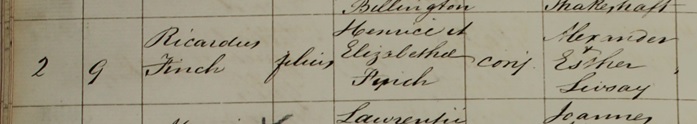 Billington Shakeshaft
Ricardus Henrici et Alexander
2 9 Finch filius Elizabethæ conj. & Esther
Finch Livsay
Laurentii Joannes